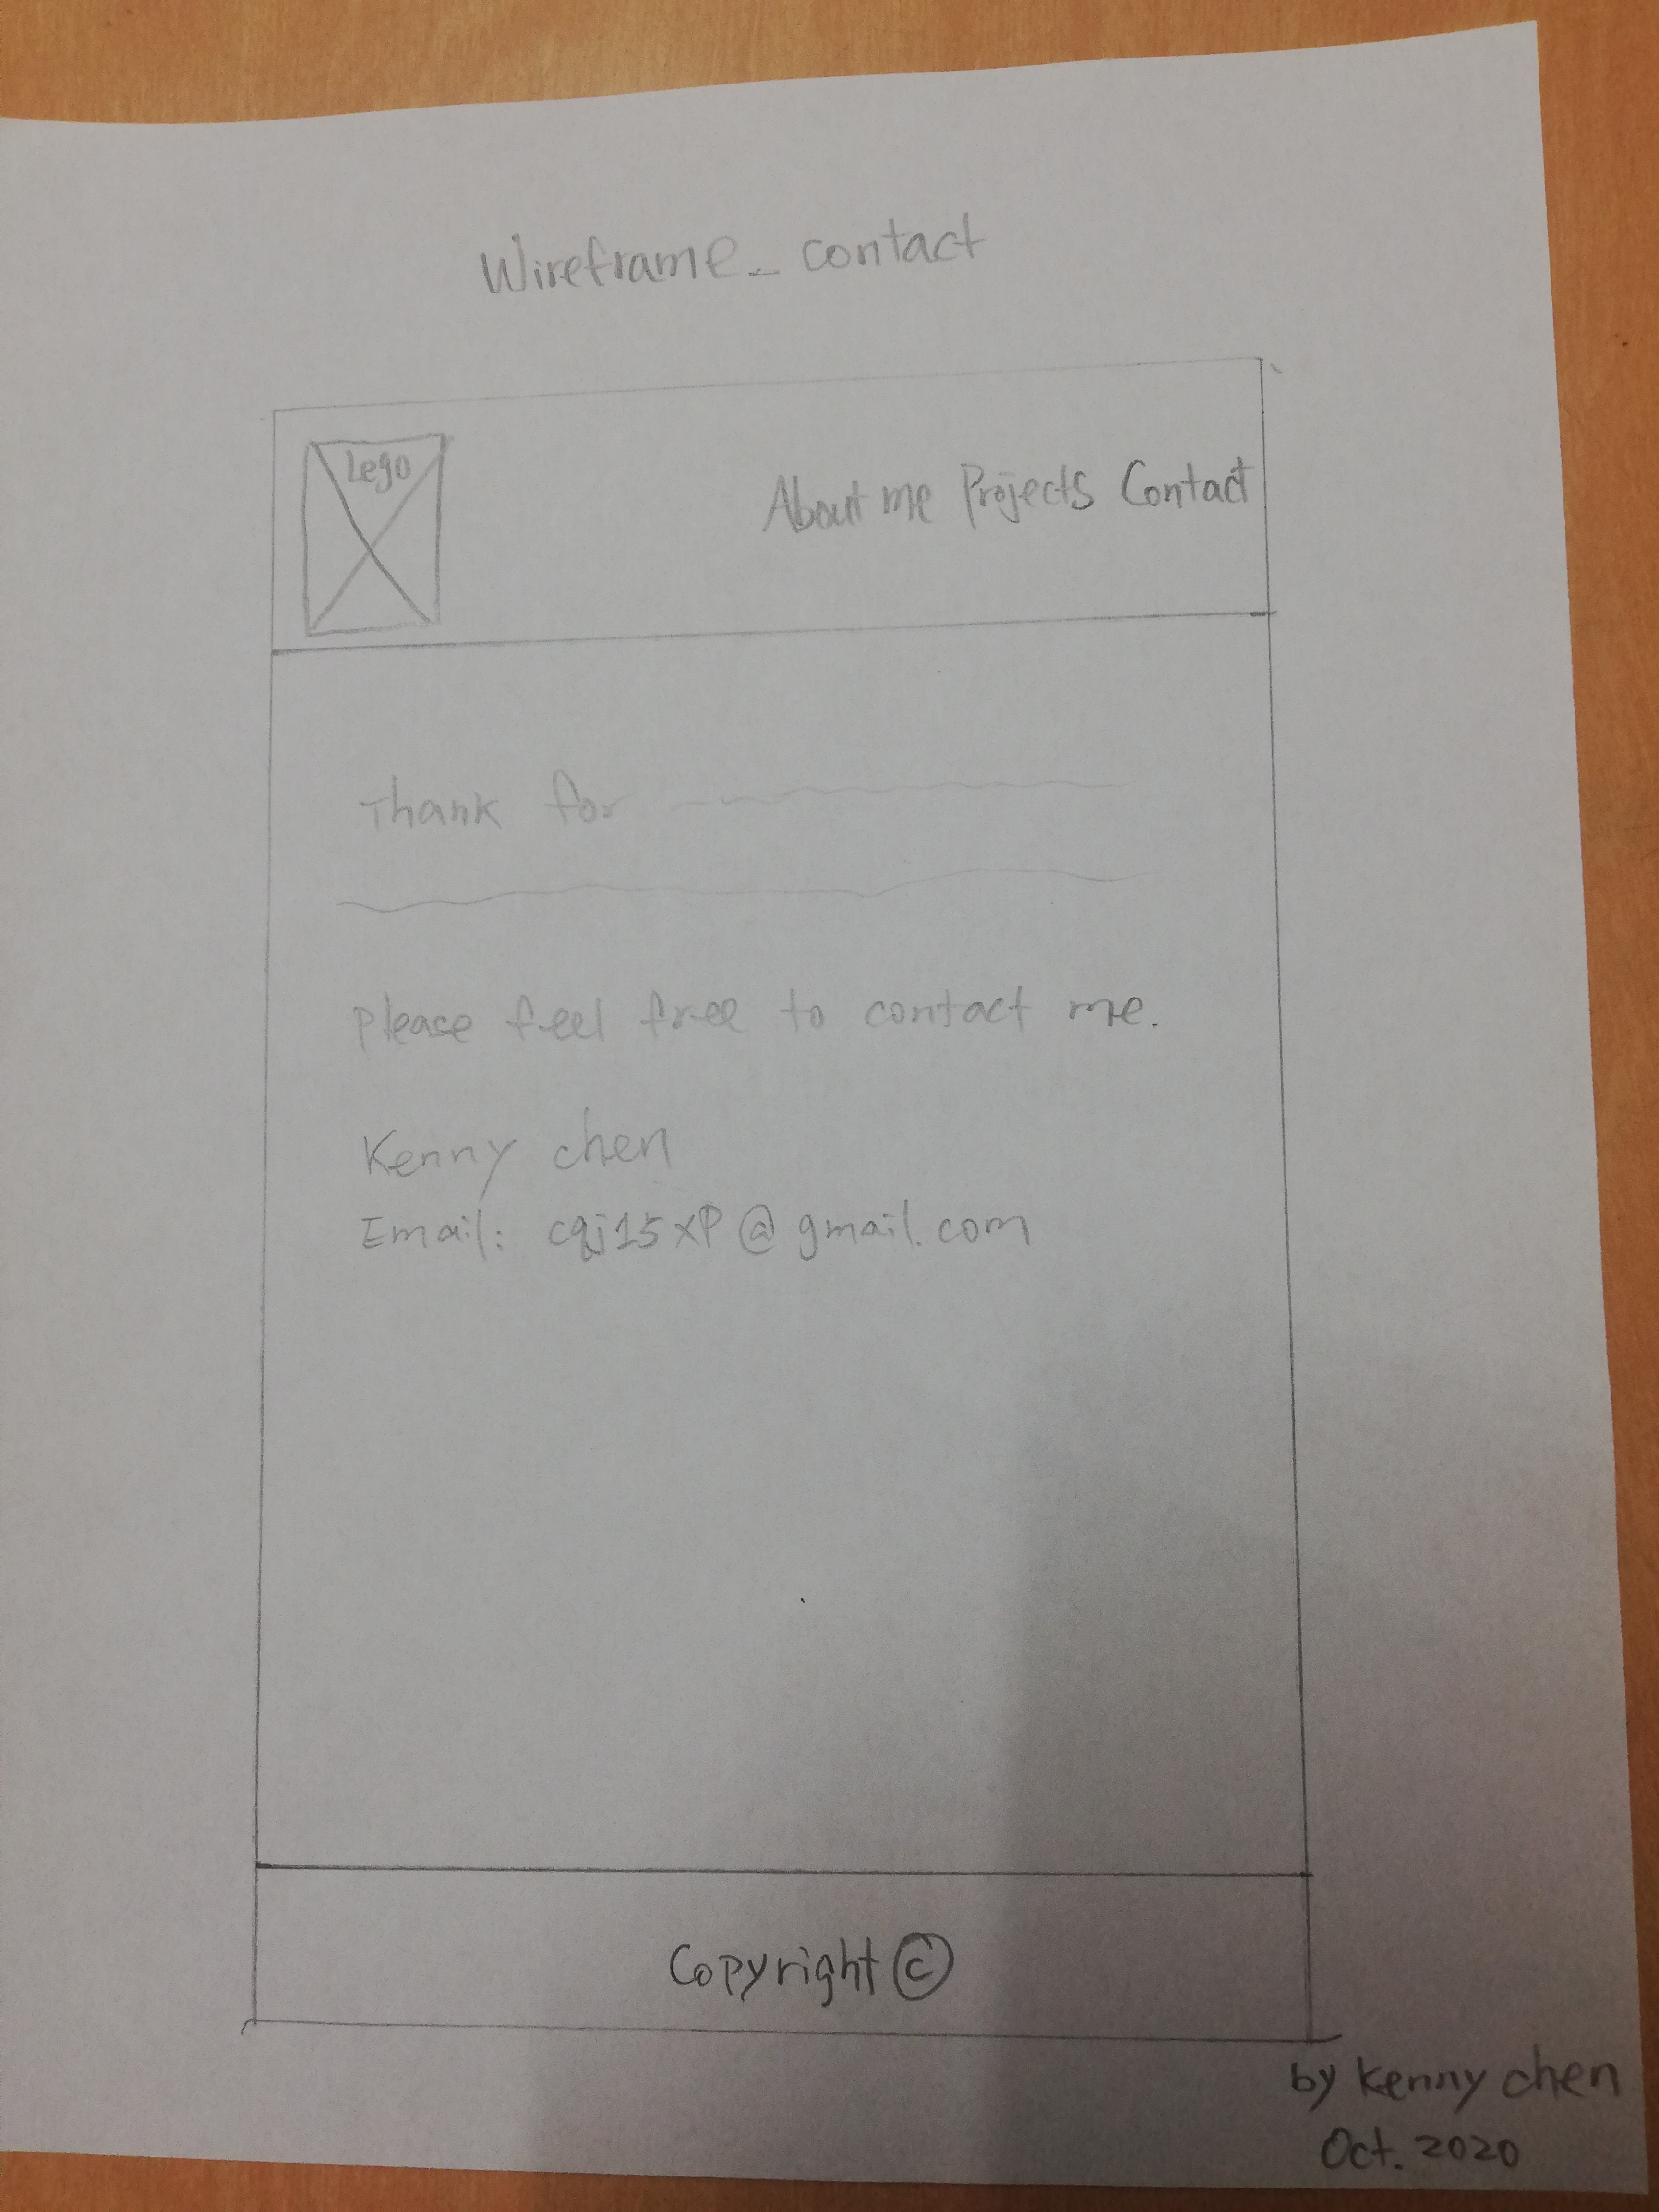 Wireframe_ contact
Lego
About me Projects Contact
Thank for
Please feel free to contact me.
Kenny chen
Email: cqj15xp@gmail.com
Copyright ©
by Kenny chen
Oct. 2020